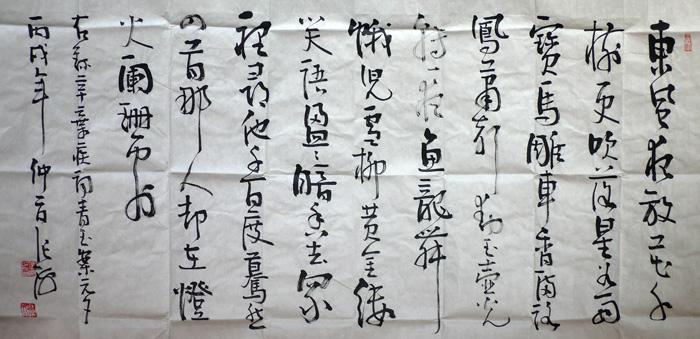 東風夜放花千
樹更吹落星如雨
寶馬雕車香滿路
鳳簫聲動玉壺光
轉一夜魚龍舞
蛾兒雪柳黃金縷
笑語盈〻暗香去眾
裡尋他千百度驀然
回首那人却在燈
火闌珊處
右錄辛棄疾詞青玉案元夕
丙戌年仲